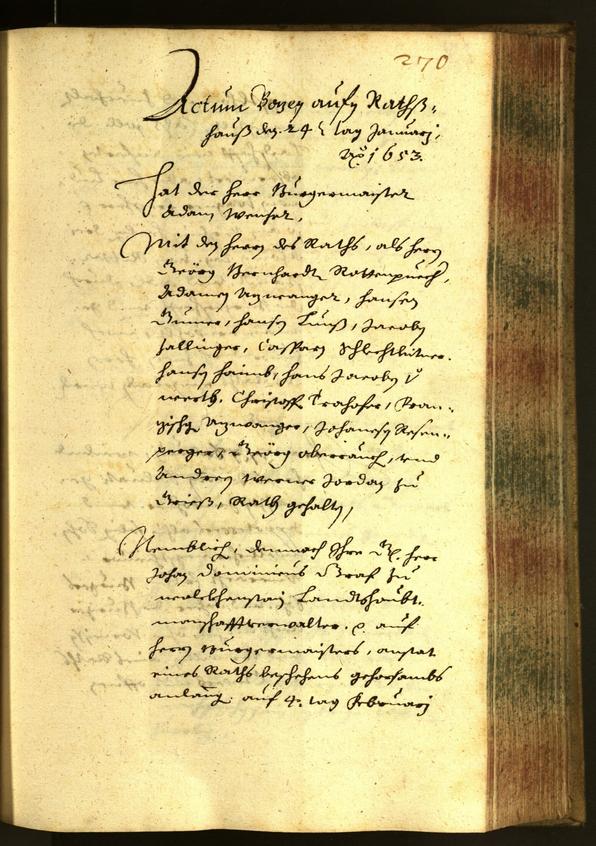 270
Actum Bozen aufm Rathß-
hauß den 24 tag Januarj
Aõ 1653.
Hat der herr Burgermaister
Adam Wenser,
Mit den herrn des Raths, als herrn
Geörg Bernhardt Rottenpuech,
Adamen Anwanger, hansen
hansen Jacoben
Jallinger, Casparn Schlechtleitner.
hansen Haimb, hans Jacoben V
werth, Christoff Trahofer, Fran-
zisco Anwanger, Johansen Rosen-
perger, Geörg oberrauch, und
Andreen Werner Jordan zu
Grieß, Rath gehalten,
Nemblich, demnach Ihre G. herr
Johan Dominicus Graf zu
wolckhenstain Landtshaubt-
manschafftverwalter. auf
herrn Burgermaisters, anstat
eines Raths beschehens gehorsambs
anlang: auf 4. tag Februarj